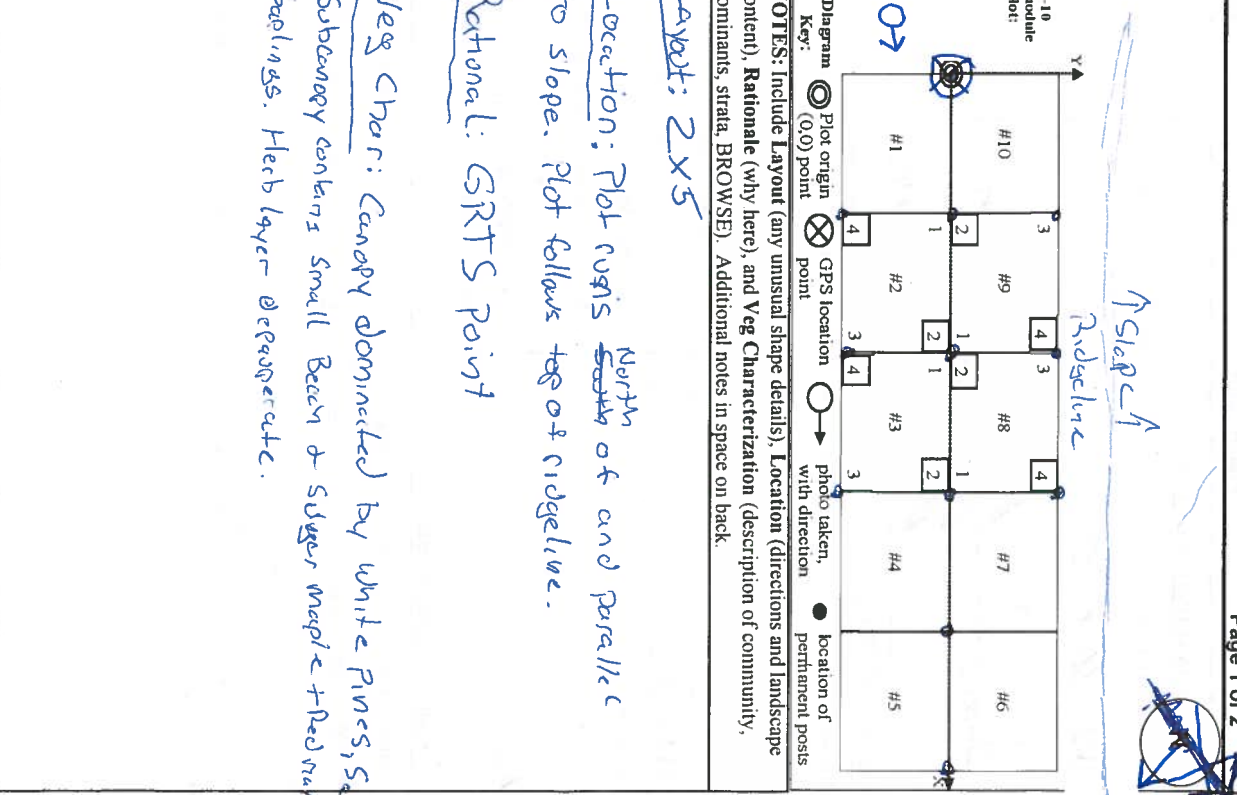 Page 1 of 2
↑Slope↑
Ridgeline
-10
Y
#10
3
#9
4
3
#8
4
#7
#6
2
1
2
1
1
2
1
2
X
#1
4
#2
3
4
#3
3
#4
#5
Diagram Key:
Plot origin (0,0) point
GPS location point
photo taken, with direction
location of permanent posts
OTES: Include Layout (any unusual shape details), Location (directions and landscape
ontent), Rationale (why here), and Veg Characterization (description of community,
ominants, strata, BROWSE). Additional notes in space on back.
ayout: 2x5
ocation: Plot runs North of and parallel
to slope. Plot follows top of ridgeline.
Rational: GRTS Point
Veg Char: Canopy dominated by white Pines,
Subcanopy contains small Beech & Sugar maple + Red
saplings. Herb layer depauperate.